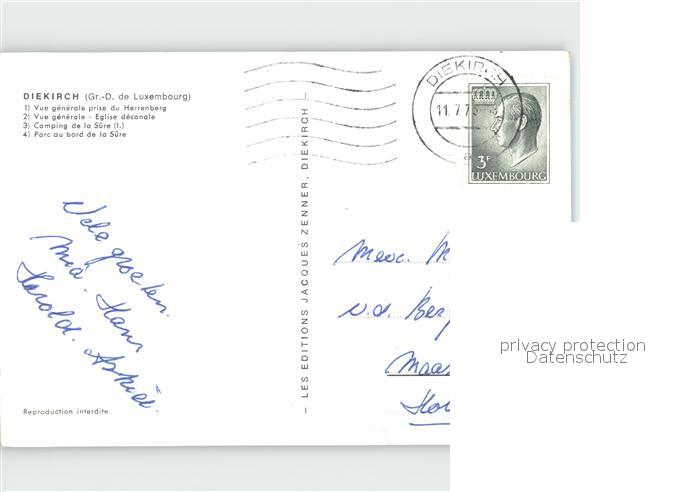 DIEKIRCH (Gr.-D. de Luxembourg)
1) Vue générale prise du Herrenberg
2) Vue générale - Eglise décanale
3) Camping de la Sûre (l.)
4) Parc au bord de la Sûre
DIEKIRCH
11.7.7
a
3F
LUXEMBOURG
— LES EDITIONS JACQUES ZENNER, DIEKIRCH —
Vele groeten.
Mia. Hans
Harold.
Mevr. M
v.d. Berg
Maas
Hol
Reproduction interdite
privacy protection
Datenschutz